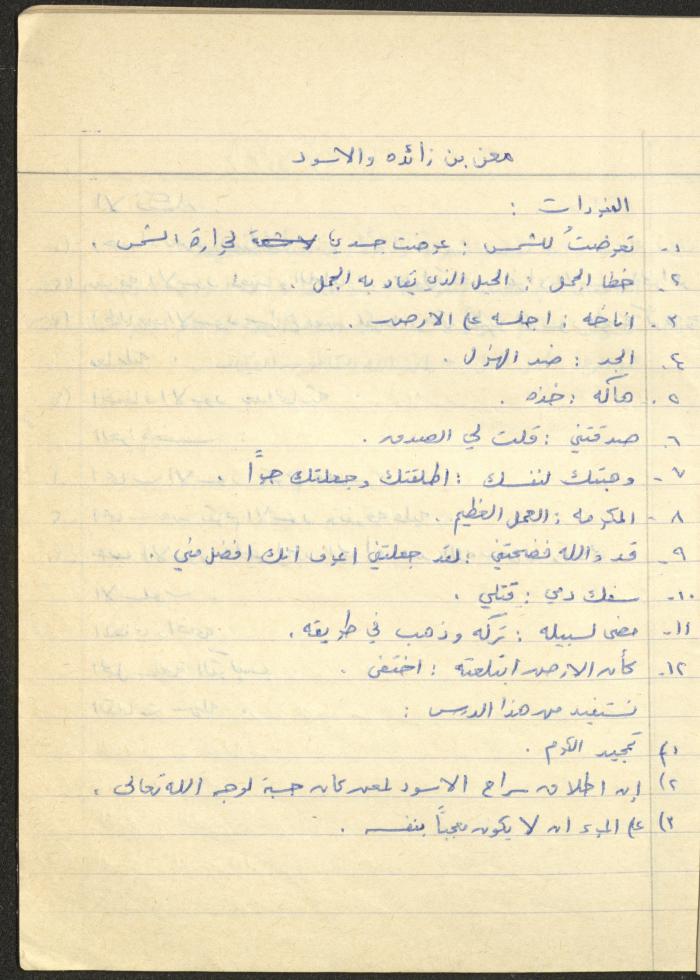 معن بن زائده والاسود
المفردات :
١- تعرضتُ للشمس : عرضت جسدي لحرارة الشمس .
٢- خطا الجمل : الحبل الذي يقاد به الجمل .
٣- اناخه : اجلسه على الارض .
٤- الجد : ضد الهزل .
٥- هاكه : خذه .
٦- صدقتني : قلت لي الصدق .
٧- وهبتك لنفسك : اطلقتك وجعلتك حراً .
٨- المكرمه : العمل العظيم .
٩- قد والله فضحتني : لقد جعلتني اعرف انك افضل مني .
١٠- سفك دمي : قتلي .
١١- مضى لسبيله : تركه وذهب في طريقه .
١٢- كأن الارض ابتلعته : اختفى .
نستفيد من هذا الدرس :
١) تمجيد الكرم .
٢) إن اطلاق سراح الاسود لمعن كان حسبة لوجه الله تعالى .
٣) على المرء ان لا يكون معجباً بنفسه .